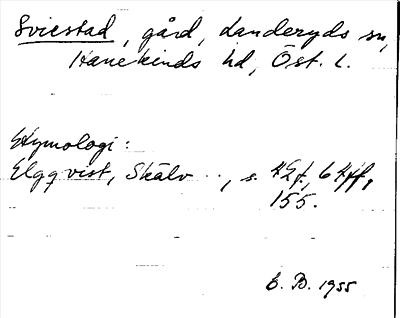 Sviestad, gård, Landeryds sn,
Hanekinds hd, Öst. l.
Etymologi:
Elgqvist, Skälv .., s. 42f, 64ff,
155.
E. B. 1955